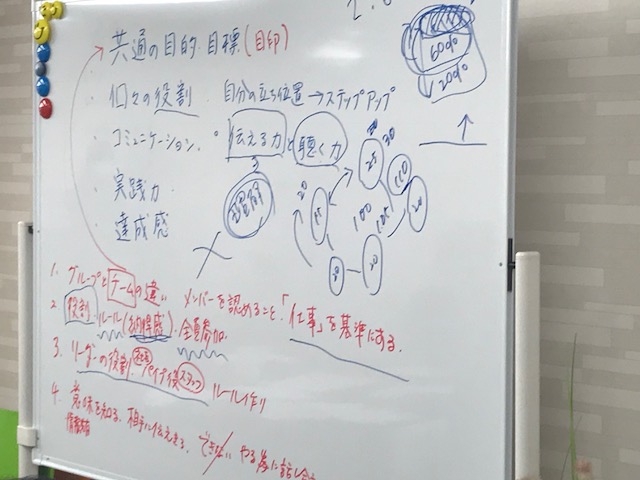 共通の目的 目標(目印)
個々の役割 自分の立ち位置→ステップアップ
コミュニケーション。伝える力と聴く力
実践力
達成感
理解
60%
20%
20
30
25
110
100
20
20
20
1. グループとチームの違い
2. 役割 ルール(納得感) 全員参加
メンバーを認めること、「仕事」を基準にする。
3. リーダーの役割 スタッフ ルール作り
4. 意味を知る、相手に伝える、できない やる為に話し合う
情報共有